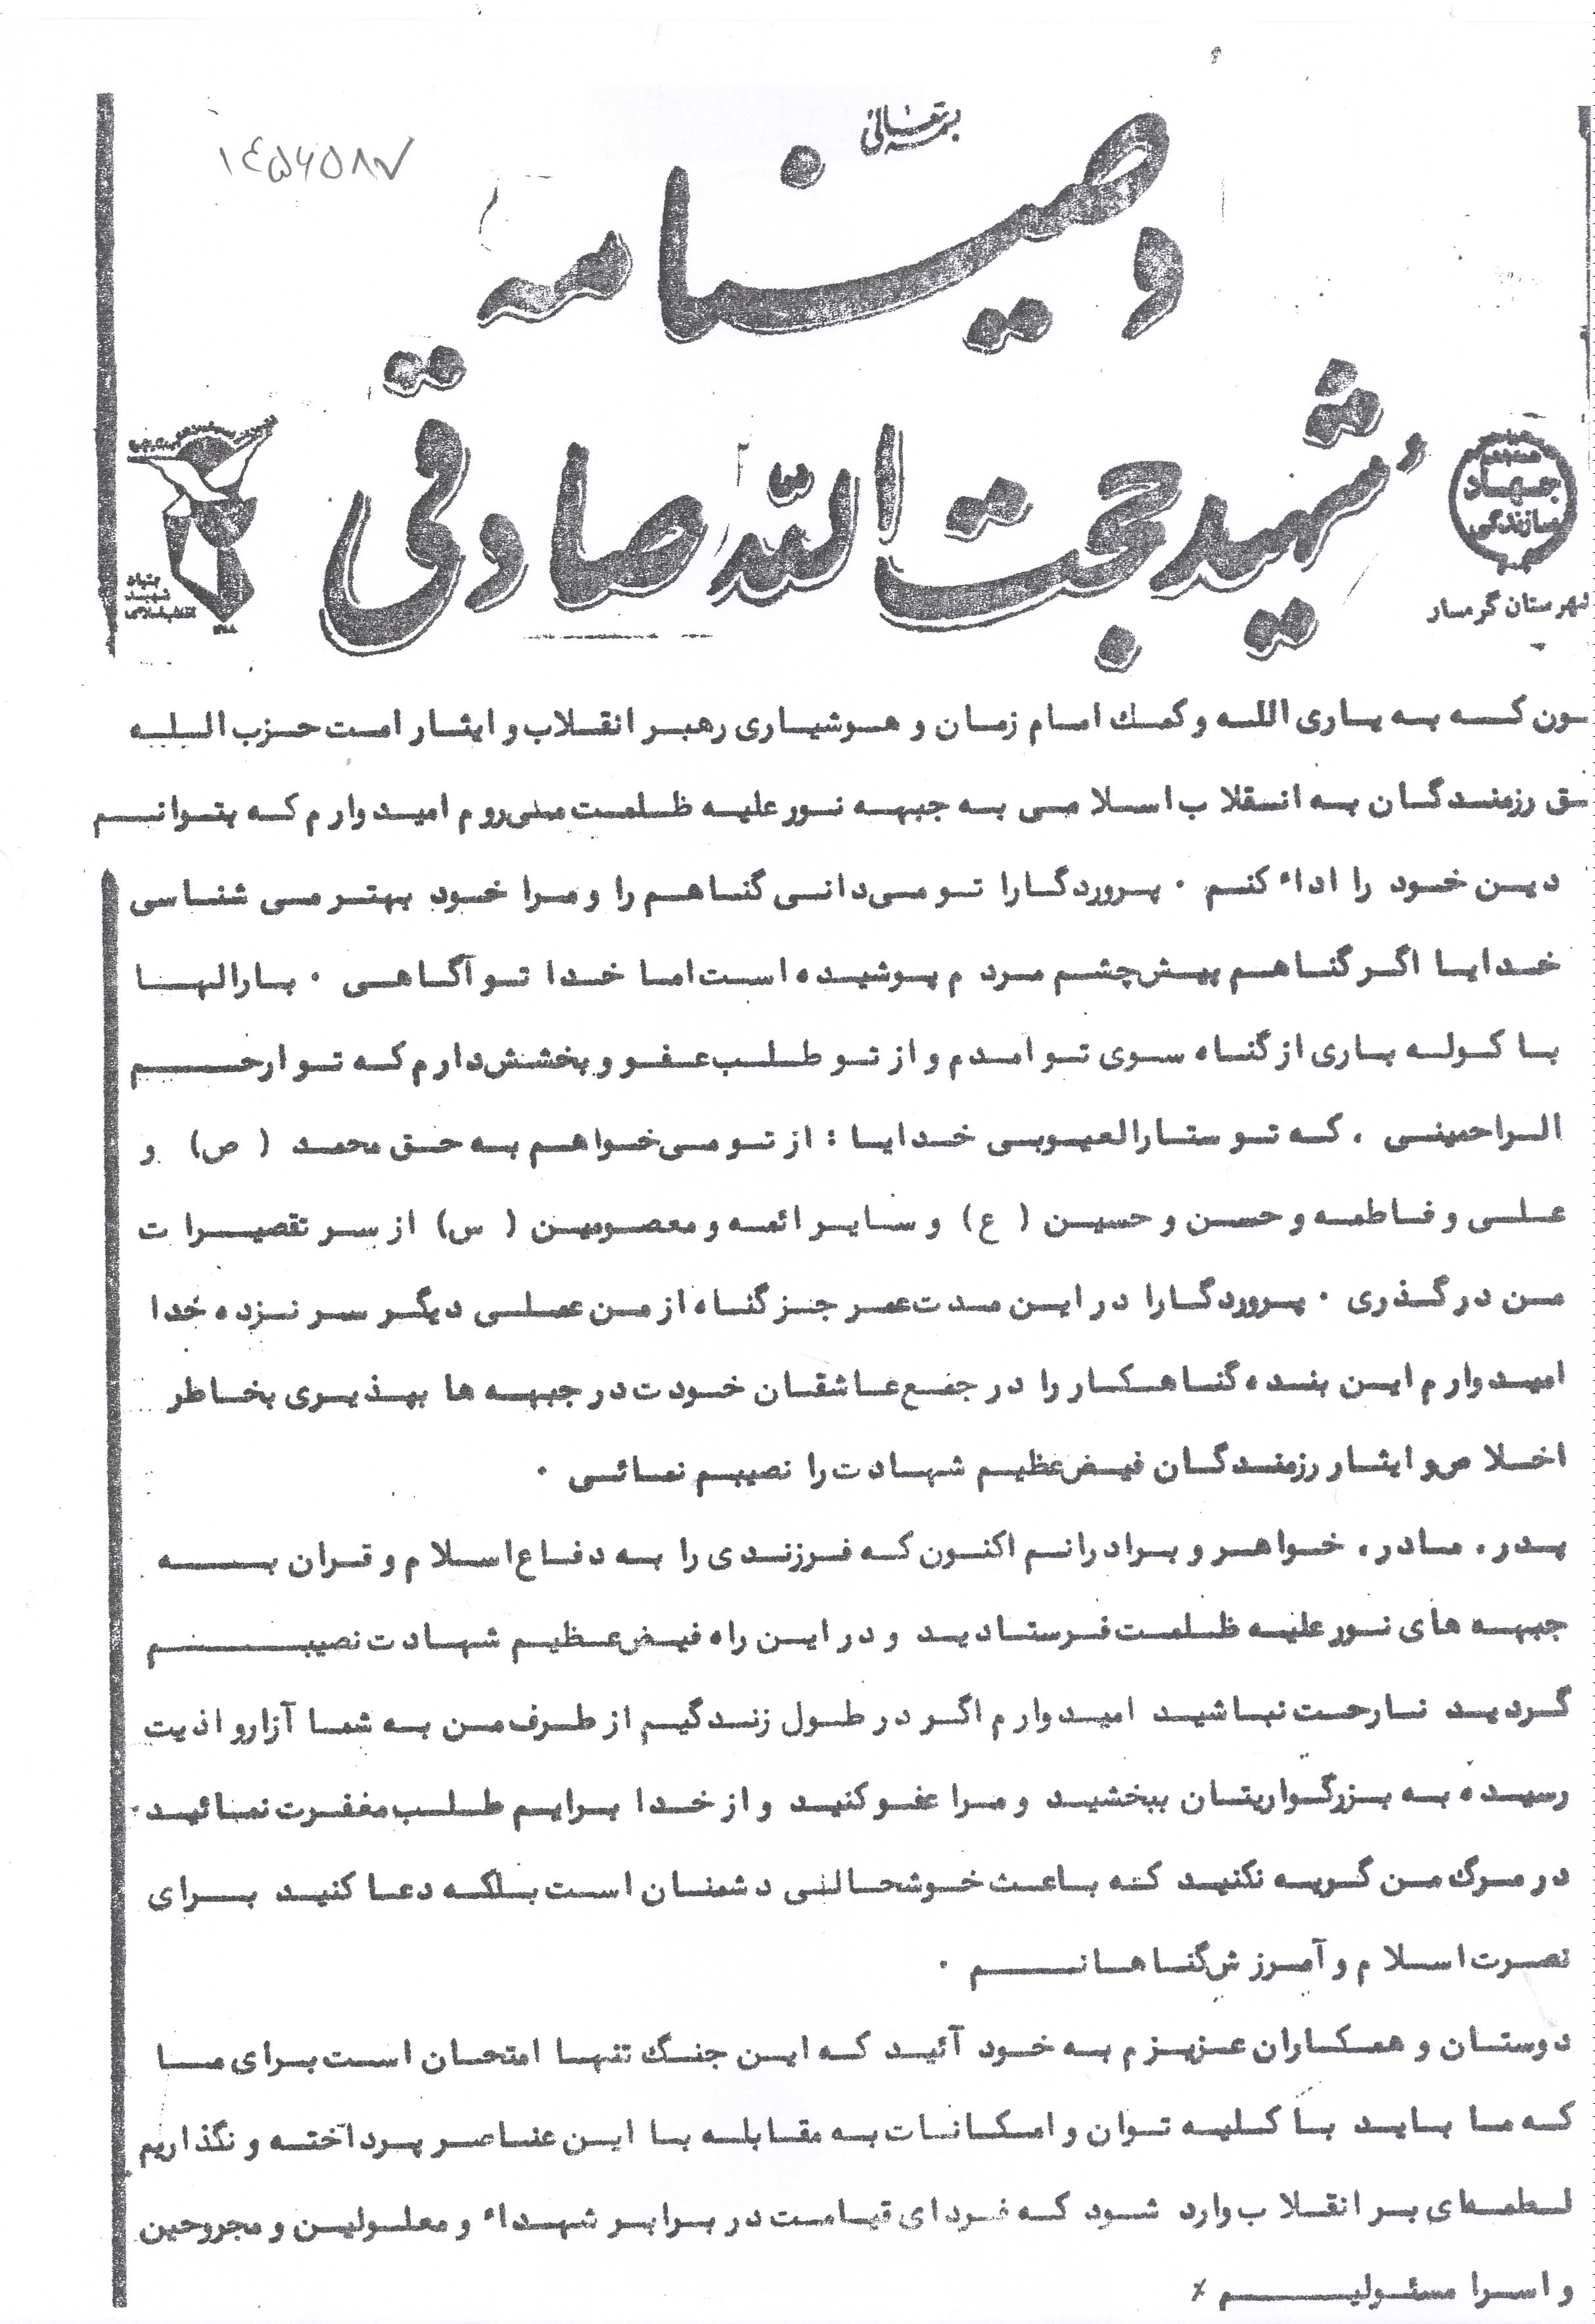 بسمه تعالی
۱۴۵۶۵۸۷
وصیتنامه
شهید حجت الله صادقی
جهاد
سازندگی
شهرستان گرمسار
بنیاد
شهید
انقلاب اسلامی
که به یاری الله و کمک امام زمان و هوشیاری رهبر انقلاب و ایثار امت حزب الله
رزمندگان به انقلاب اسلامی به جبهه نور علیه ظلمت می‌روم امیدوارم که بتوانم
دین خود را اداء کنم . پروردگارا تو می‌دانی گناهم را و مرا خود بهتر می شناسی
خدایا اگر گناهم پیش چشم مردم پوشیده است اما خدا تو آگاهی . بارالها
با کوله باری از گناه سوی تو امدم و از تو طلب عفو و بخشش دارم که تو ارحم
الراحمینی ، که تو ستارالعیوبی خدایا : از تو می‌خواهم به حق محمد ( ص) و
علی و فاطمه و حسن و حسین ( ع) و سایر ائمه و معصومین ( س) از سر تقصیرات
من در گذری . پروردگارا در این مدت عمر جز گناه از من عملی دیگر سر نزده خدا
امیدوارم این بنده گناهکار را در جمع عاشقان خودت در جبهه ها بپذیری بخاطر
اخلاص و ایثار رزمندگان فیض عظیم شهادت را نصیبم نمائی .
پدر، مادر، خواهر و برادرانم اکنون که فرزندی را به دفاع اسلام و قران به
جبهه های نور علیه ظلمت فرستادید و در این راه فیض عظیم شهادت نصیبم
گردید نارحت نباشید امیدوارم اگر در طول زندگیم از طرف من به شما آزار و اذیت
رسیده به بزرگواریتان ببخشید و مرا عفو کنید و از خدا برایم طلب مغفرت نمائید.
در مرگ من گریه نکنید که باعث خوشحالی دشمنان است بلکه دعا کنید برای
نصرت اسلام و آمرزش گناهانم .
دوستان و همکاران عزیزم به خود آئید که این جنگ تنها امتحان است برای ما
که ما باید با کلیه توان و امکانات به مقابله با این عناصر پرداخته و نگذاریم
لطمه‌ای بر انقلاب وارد شود که فردای قیامت در برابر شهداء و معلولین و مجروحین
و اسرا مسئولیم ٪